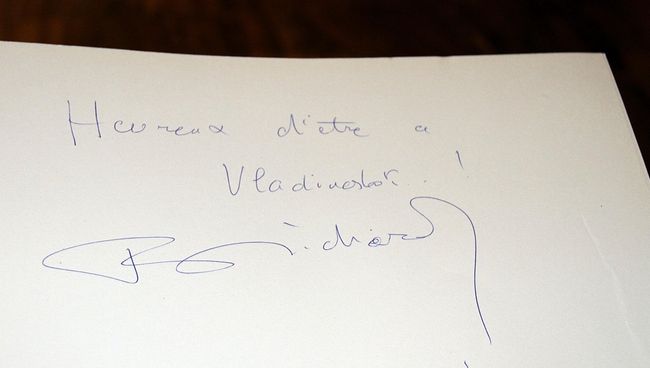 Heureux d'etre a
Vladivostok..!
Richard